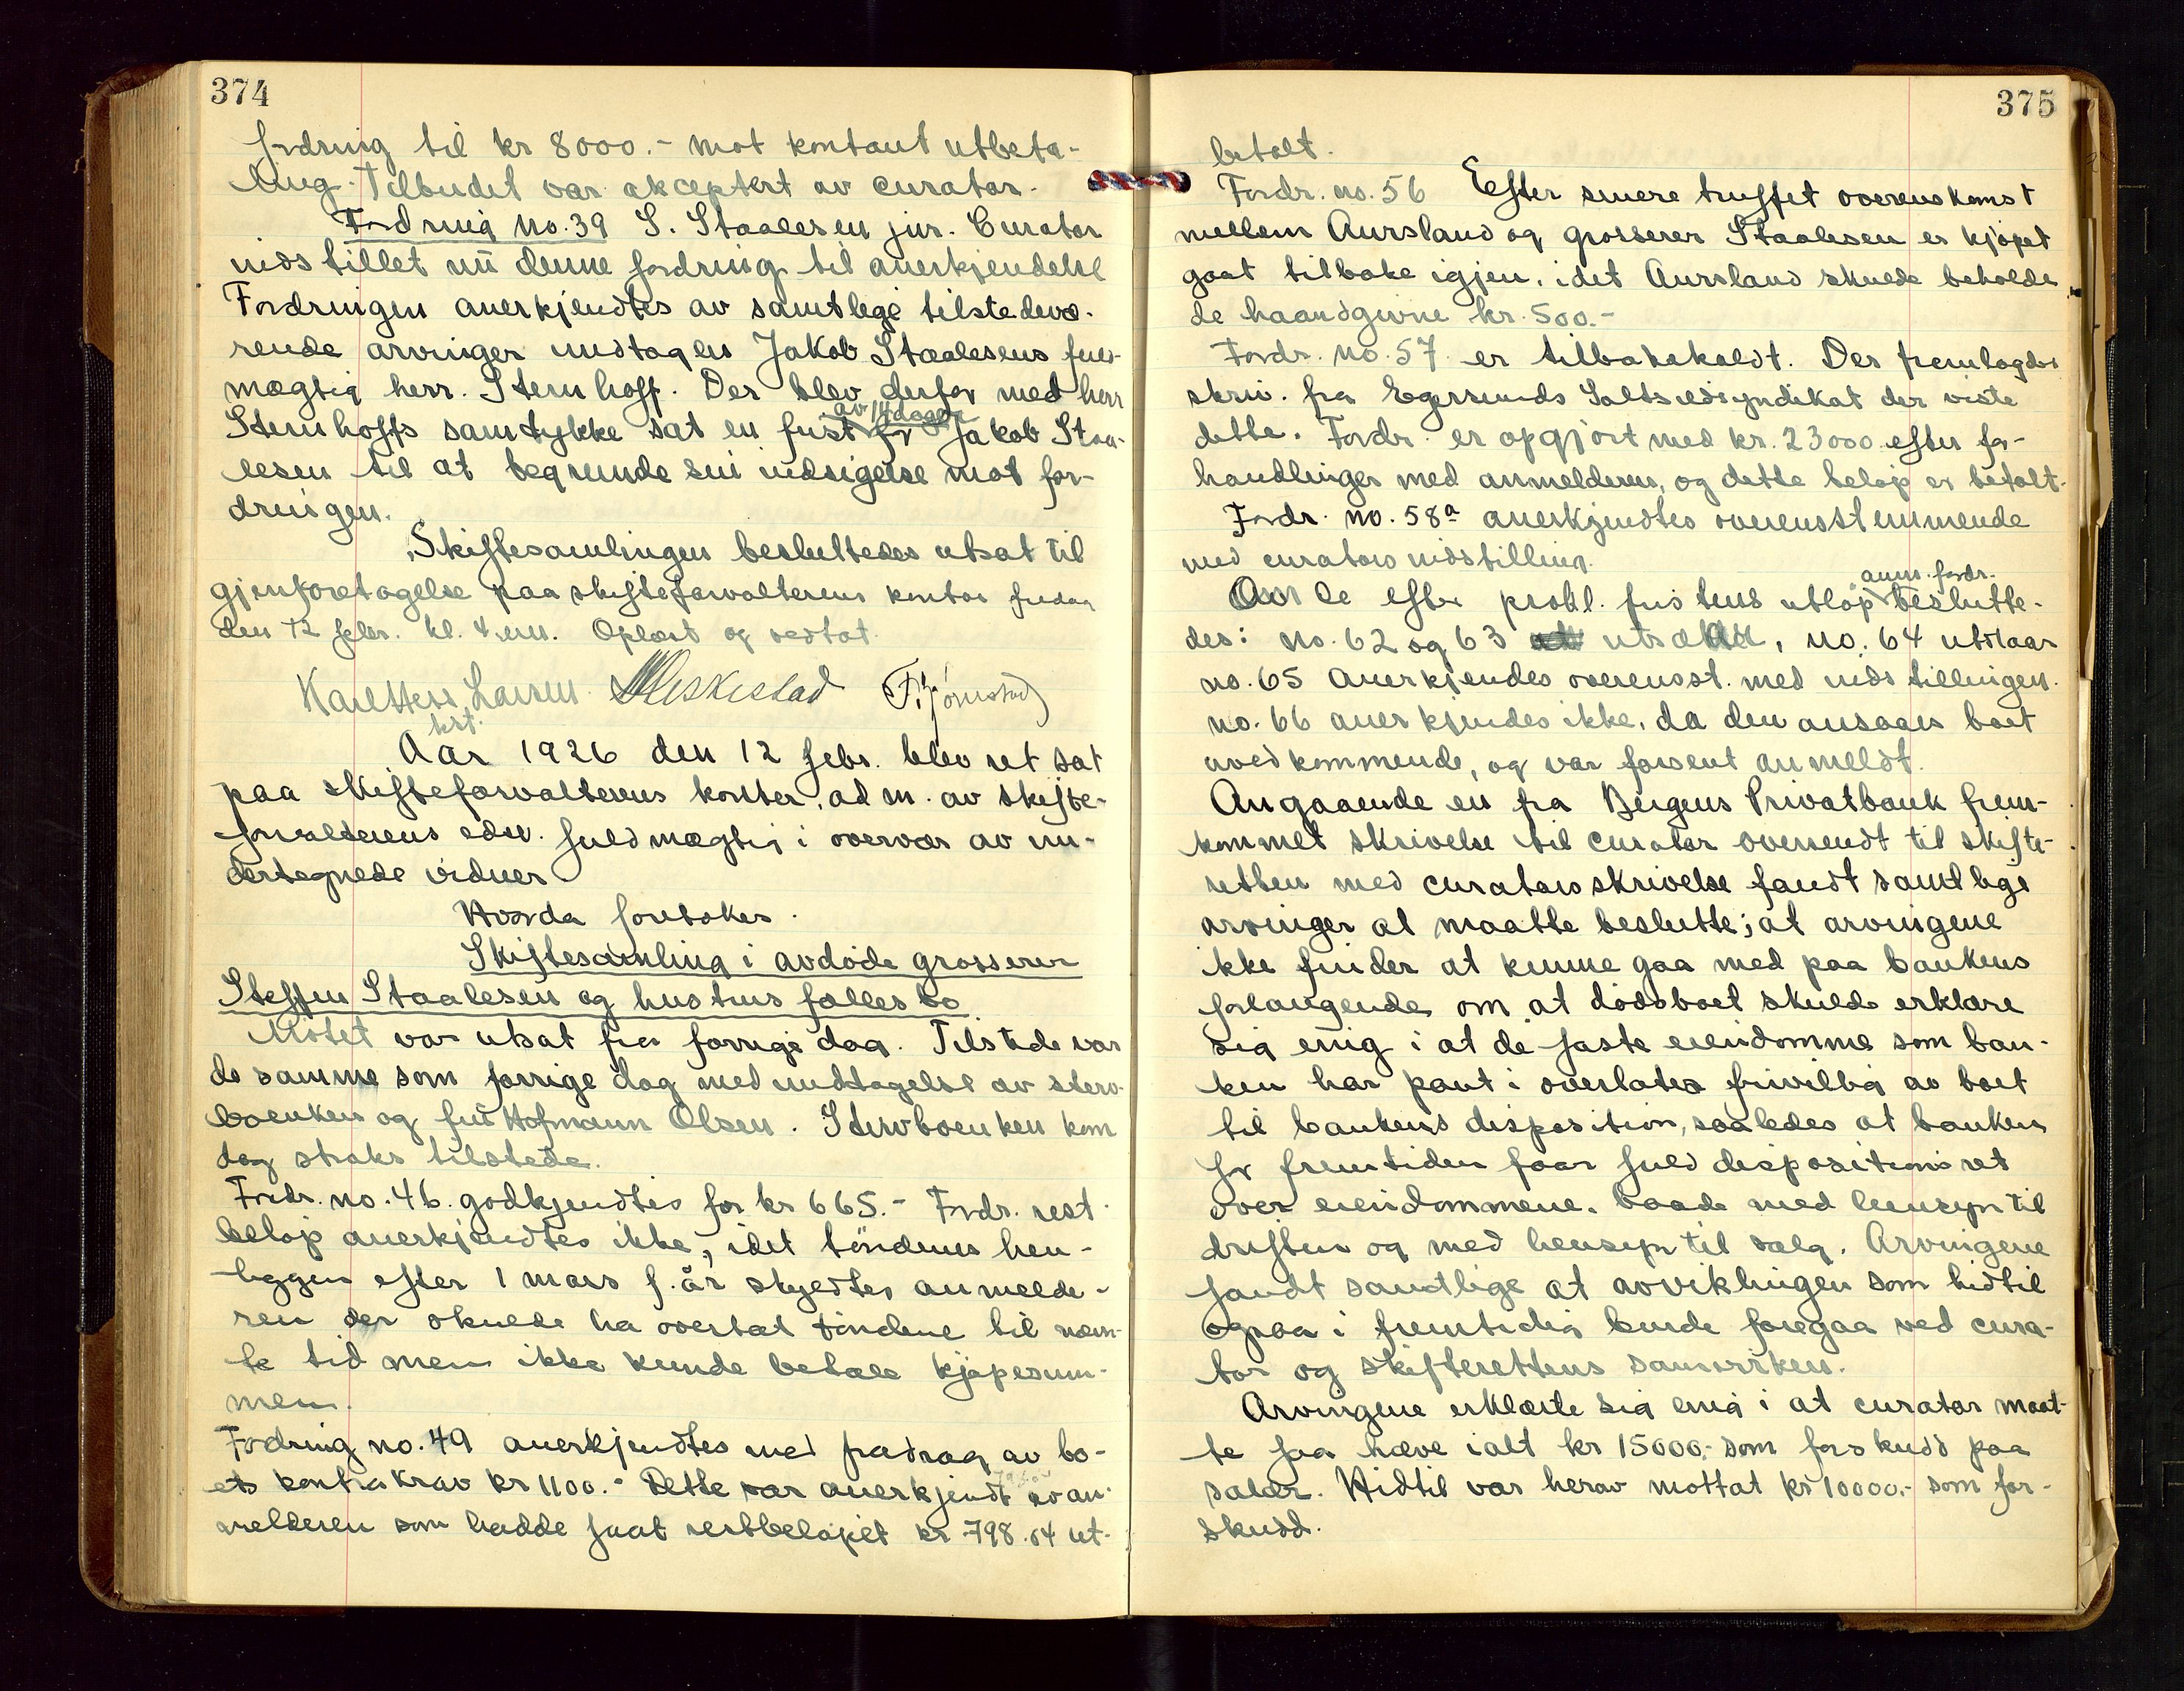 374
fordring til kr 8000.- mot kontant utbeta-
ling. Tilbudet var akceptert av curator.
Fordring no. 39 S. Staalesen jur. Curator
indstillet nu denne fordring til anerkjendelse
Fordringen anerkjendtes av samtlige tilstedevæ-
rende arvinger undtagen Jakob Staalesens fuld-
mægtig herr. Stemhoff. Der blev derfor med herr
Stemhoffs samtykke sat en frist av 14 dage for Jakob Staa-
lesen til at begrunde sin indsigelse mot for-
dringen.
Skiftesamlingen besluttedes utsat til
gjenforetagelse paa skifteforvalterens kontor fredag
den 12 febr. kl. 4 em. Oplæst og vedtat.
Karl Hess Larsen
kst.
Aar 1926 den 12 febr. blev ret sat
paa skifteforvalterens kontor, ad m. av skifte-
forvalterens edsv. fuldmægtig i overvær av un-
dertegnede vidner.
Hvorda foretokes.
Skiftesamling i avdøde grosserer
Steffen Staalesen og hustrus fælles bo
Møtet var utsat fra forrige dag. Tilstede var
de samme som forrige dag med undtagelse av sterv-
boenken og fru Hofmann Olsen. Stervboenken kom
dog straks tilstede.
Fordr. no. 46. godkjendtes for kr 665.- Fordr. rest
beløp anerkjendtes ikke, idet tøndenes hen-
liggen efter 1 mars f. år skyedtes anmelde-
ren der skulde ha overtat tøndene til nævn-
te tid men ikke kunde betale kjøpesum-
men.
Fordring no. 49 anerkjendtes med fradrag av bo-
ets kontrakrav kr 1100.- Dette var anerkjendt av an-
melderen som hadde faat restbeløpet kr 798.04 ut-
375
betalt.
Fordr. no. 56 Efter senere truffet overenskomst
mellem Aursland og grosserer Staalesen er kjøpet
gaat tilbake igjen, idet Aursland skulde beholde
de haandgivne kr. 500.-
Fordr. no. 57 er tilbakekaldt. Der fremlagdes
skriv. fra Egersunds Saltsildsyndikat der viste
dette. Fordr. er opgjort med kr. 23000 efter for-
handlinger med anmelderen, og dette beløp er betalt.
Fordr. no. 58a anerkjendtes overensstemmende
med curators indstilling.
de efter prokl. fristens utløp anm. fordr. beslutte-
des: no. 62 og 63 utsættes, no. 64 utstaar
no. 65 anerkjendes overensst. med indstillingen.
no. 66 anerkjendes ikke, da den ansaaes boet
uvedkommende, og var forsent anmeldt.
Angaaende en fra Bergens Privatbank frem-
kommet skrivelse til curator oversendt til skifte-
retten med curators skrivelse fandt samtlige
arvinger at maatte beslutte; at arvingene
ikke finder at kunne gaa med paa bankens
forlangende om at dødsboet skulde erklære
sig enig i at de faste eiendomme som ban-
ken har pant i overlates frivillig av boet
til bankens disposition, saaledes at banken
for fremtiden faar fuld dispositionsret
over eiendommene, baade med hensyn til
driften og med hensyn til salg. Arvingene
fandt samtlige at avviklingen som hidtil
ogsaa i fremtiden burde foregaa ved cura-
tor og skifterettens samvirken.
Arvingene erklærte sig enig i at curator maat-
te faa hæve ialt kr 15000.- som forskudd paa
salær. Hidtil var herav mottat kr 10000.- som for-
skudd.